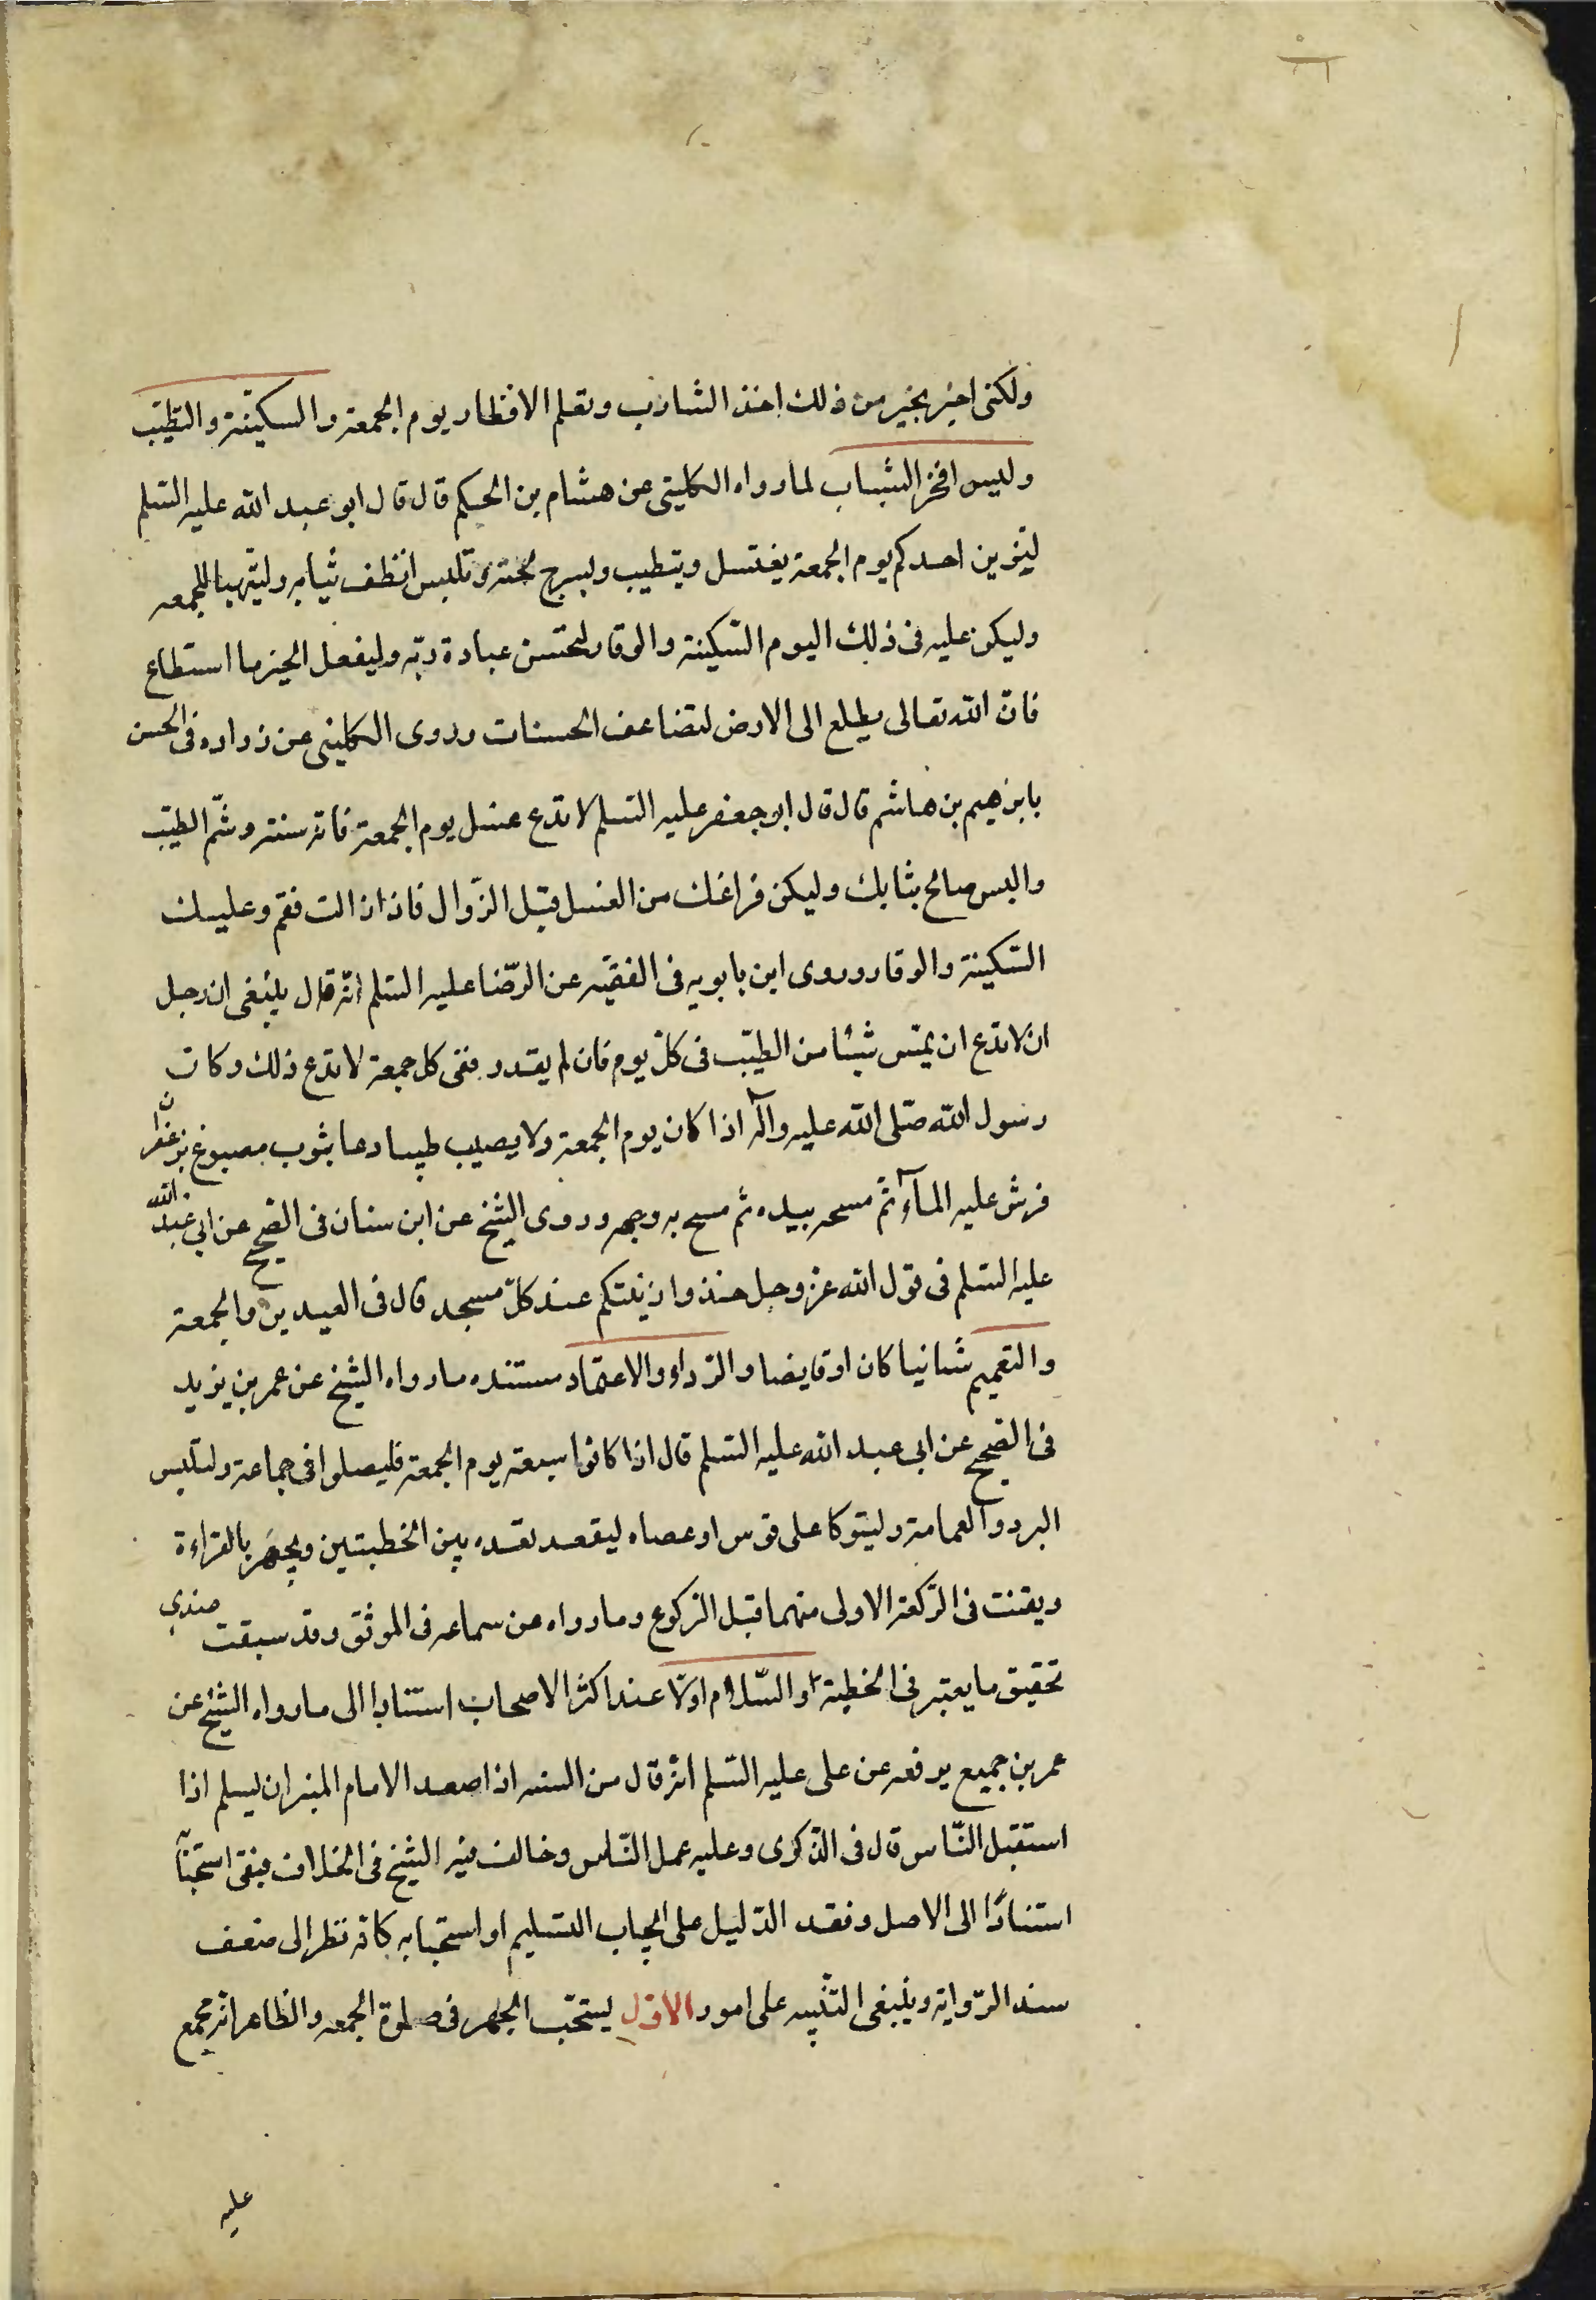 ولكنى اخبر بخير من ذلك اخذ الشارب وتقلم الاظفار يوم الجمعة والسكينة والتطيب
ولبس افخر الثياب لما رواه الكلينى عن هشام بن الحكم قال قال ابو عبد الله عليه السلم
ليتزين احدكم يوم الجمعة يغتسل ويتطيب ويسرح لحيته وتلبس انظف ثيابه وليتهيا للجمعه
وليكن عليه فى ذلك اليوم السكينة والوقار ليحسن عبادة ربّه وليفعل الخير ما استطاع
فانّ الله تعالى يطلع الى الارض لتضاعف الحسنات وروى الكلينى عن زراره فى الحسن
بابرهيم بن هاشم قال قال ابو جعفر عليه السلم لا تدع غسل يوم الجمعة فانّه سنة وشمّ الطيّب
والبس صالح ثيابك وليكن فراغك من الغسل قبل الزّوال فاذا زالت فقم وعليك
السّكينة والوقار وروى ابن بابويه فى الفقيه عن الرّضا عليه السلم انّه قال ينبغى ان رجل
ان لا تدع ان يمسّ شيئا من الطيّب فى كلّ يوم فان لم يقدر ففى كل جمعة لا تدع ذلك وكان
رسول الله صلّى الله عليه وآله اذا كان يوم الجمعة ولا يصيب طيبا دعا بثوب مصبوغ بزعفران
فرش عليه المآء ثمّ مسحه بيده ثم مسح به وجهه وروى الشيخ عن ابن سنان فى الصّحيح عن ابى عبد الله
عليه السلم فى قول الله عز وجل خذوا زينتكم عند كلّ مسجد قال فى العيدين والجمعة
والتعميم شانيا كان او قايضا والرّداء والاعتماد مستنده ما رواه الشيخ عن عمر بن يزيد
فى الصّحيح عن ابى عبد الله عليه السّلم قال اذا كانوا سبعة يوم الجمعة فليصلوا فى جماعة وليلبس
البرد والعمامة وليتوكا على قوس او عصاه ليقعد قعده بين الخطبتين ويجهَر بالقراءة
ويقنت فى الرّكعة الاولى منهما قبل الرّكوع وما رواه عن سماعه فى الموثق وقد سبقت
تحقيق ما يعتبر فى الخطبة او السّلام اولا عند اكثر الاصحاب استنادا الى ما رواه الشيخ عن
عمر بن جميع يرفعه عن على عليه السّلم انّه قال من السنه اذا صعد الامام المنبر ان ليسلم اذا
استقبل النّاس قال فى الذّكرى وعليه عمل النّاس وخالف فيه الشيخ فى الخلاف فنفى استحبابا
استنادًا الى الاصل وفقد الدّليل على ايجاب التسليم او استحبابه كانّه نظر الى ضعف
سند الرّواية وينبغى التنبيه على امور الاوّل ليستحبّ الجهر فى صلوة الجمعه والظاهر انّه مجمع
عليه